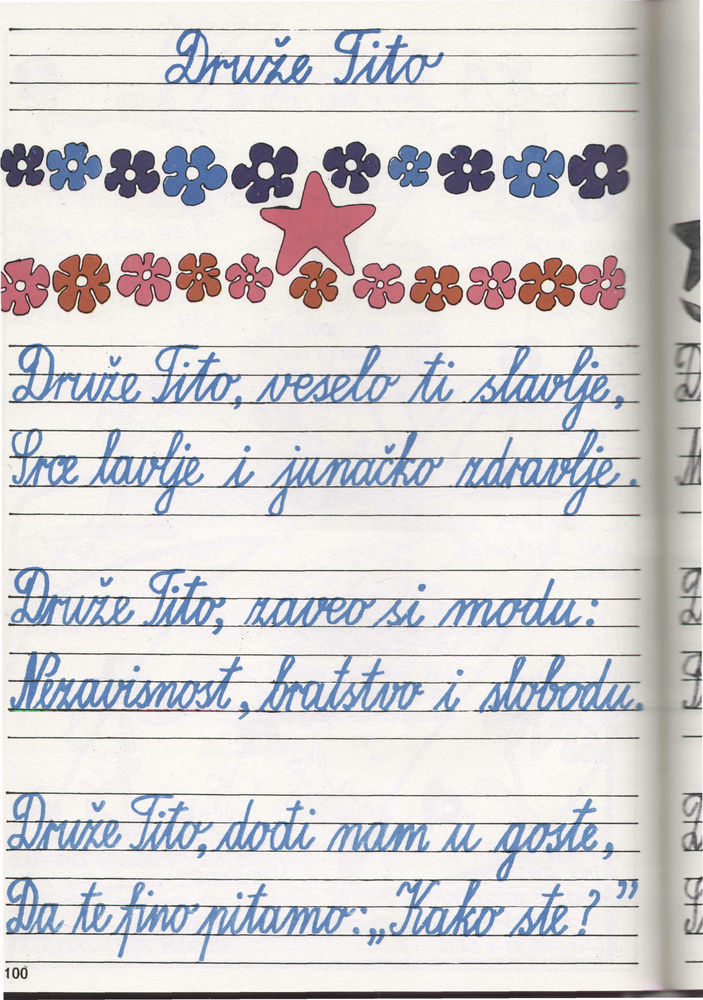 Druže Tito
Druže Tito, veselo ti slavlje,
Srce lavlje i junačko zdravlje.
Druže Tito, zaveo si modu:
Nezavisnost, bratstvo i slobodu.
Druže Tito, dođi nam u goste,
Da te fino pitamo: „Kako ste?”
100